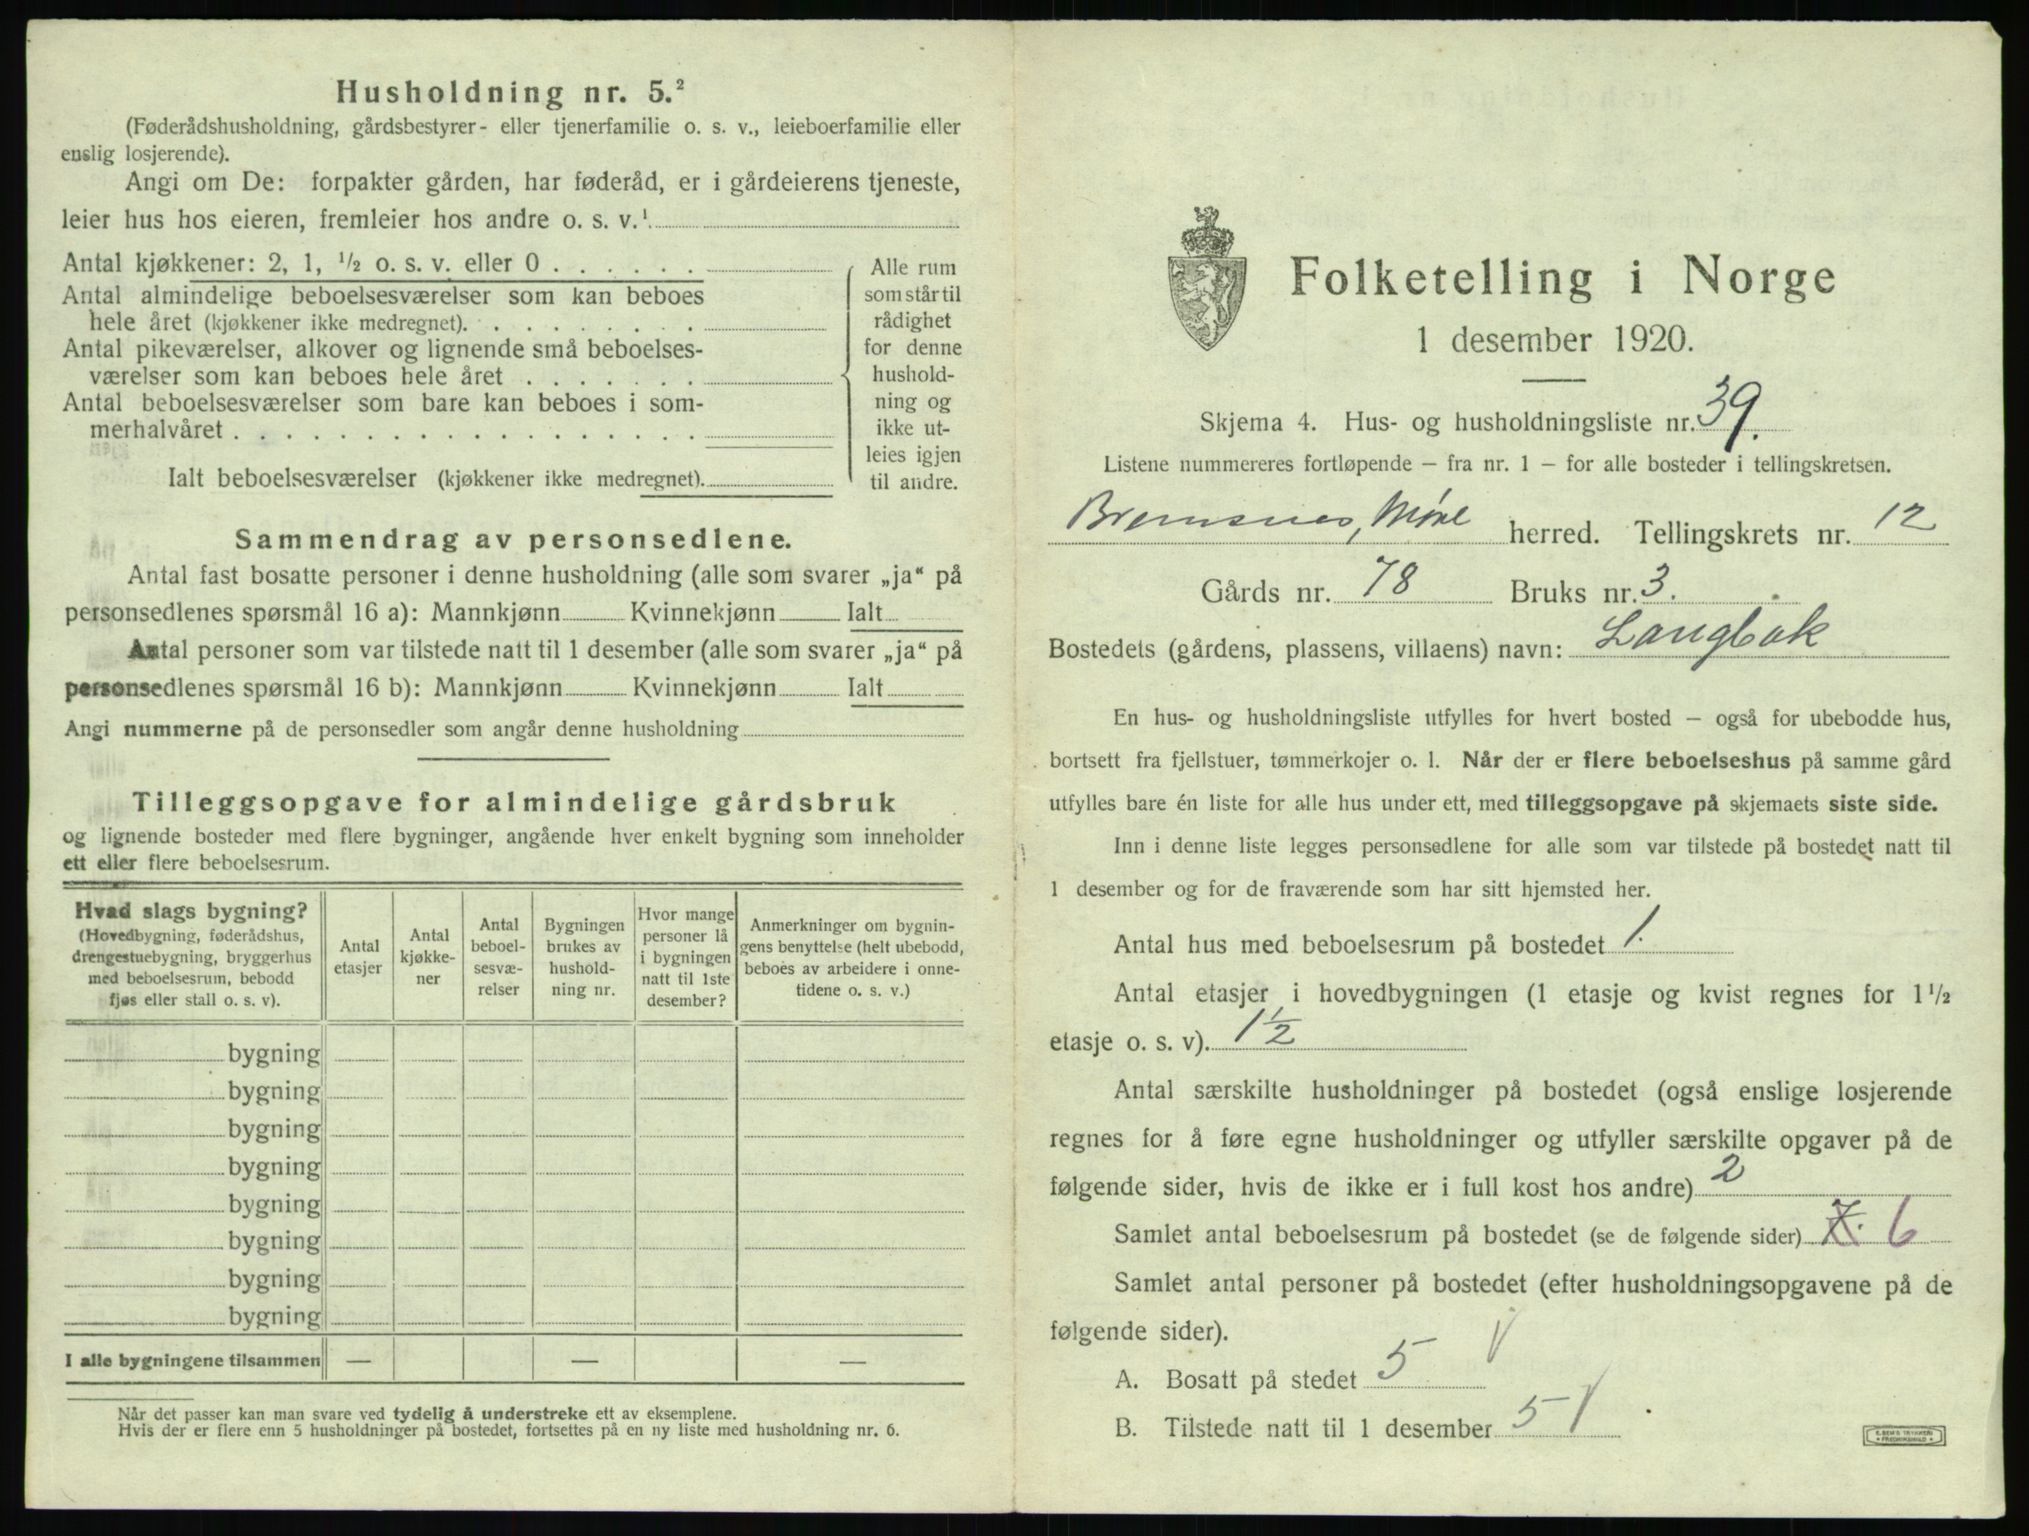 Husholdning nr. 5.²
(Føderådshusholdning, gårdsbestyrer- eller tjenerfamilie o. s. v., leieboerfamilie eller
enslig losjerende).
Angi om De: forpakter gården, har føderåd, er i gårdeierens tjeneste,
leier hus hos eieren, fremleier hos andre o. s. v.¹
Antal kjøkkener: 2, 1, ½ o. s. v. eller 0 . . . . . .
Antal almindelige beboelsesværelser som kan beboes
hele året (kjøkkener ikke medregnet). . . . . . . . .
Antal pikeværelser, alkover og lignende små beboelses-
værelser som kan beboes hele året . . . . . . .
Antal beboelsesværelser som bare kan beboes i som-
merhalvåret . . . . . . . . . . . . . . . . . .
Ialt beboelsesværelser (kjøkkener ikke medregnet).
Alle rum
som står til
rådighet
for denne
hushold-
ning og
ikke ut-
leies igjen
til andre.
Sammendrag av personsedlene.
Antal fast bosatte personer i denne husholdning (alle som svarer „ja“ på
personsedlenes spørsmål 16 a): Mannkjønn Kvinnekjønn Ialt
Antal personer som var tilstede natt til 1 desember (alle som svarer „ja“ på
personsedlenes spørsmål 16 b): Mannkjønn Kvinnekjønn Ialt
Angi nummerne på de personsedler som angår denne husholdning
Tilleggsopgave for almindelige gårdsbruk
og lignende bosteder med flere bygninger, angående hver enkelt bygning som inneholder
ett eller flere beboelsesrum.
Hvad slags bygning?
(Hovedbygning, føderådshus,
drengestuebygning, bryggerhus
med beboelsesrum, bebodd
fjøs eller stall o. s. v).
Antal
etasjer
Antal
kjøkke-
ner
Antal
beboel-
sesvæ-
relser
Bygningen
brukes av
hushold-
ning nr.
Hvor mange
personer lå
i bygningen
natt til 1ste
desember?
Anmerkninger om bygnin-
gens benyttelse (helt ubebodd,
beboes av arbeidere i onne-
tidene o. s. v.)
bygning
bygning
bygning
bygning
bygning
bygning
bygning
bygning
I alle bygningene tilsammen — — —
Når det passer kan man svare ved tydelig å understreke ett av eksemplene.
Hvis der er flere enn 5 husholdninger på bostedet, fortsettes på en ny liste med husholdning nr. 6.
Folketelling i Norge
1 desember 1920.
Skjema 4. Hus- og husholdningsliste nr. 39.
Listene nummereres fortløpende – fra nr. 1 – for alle bosteder i tellingskretsen.
Bremsnes, Møre herred. Tellingskrets nr. 12
Gårds nr. 78 Bruks nr. 3.
Bostedets (gårdens, plassens, villaens) navn: Langbak
En hus- og husholdningsliste utfylles for hvert bosted – også for ubebodde hus,
bortsett fra fjellstuer, tømmerkojer o. l. Når der er flere beboelseshus på samme gård
utfylles bare én liste for alle hus under ett, med tilleggsopgave på skjemaets siste side.
Inn i denne liste legges personsedlene for alle som var tilstede på bostedet natt til
1 desember og for de fraværende som har sitt hjemsted her.
Antal hus med beboelsesrum på bostedet 1.
Antal etasjer i hovedbygningen (1 etasje og kvist regnes for 1½
etasje o. s. v). 1½
Antal særskilte husholdninger på bostedet (også enslige losjerende
regnes for å føre egne husholdninger og utfyller særskilte opgaver på de
følgende sider, hvis de ikke er i full kost hos andre) 2
Samlet antal beboelsesrum på bostedet (se de følgende sider) 7. 6
Samlet antal personer på bostedet (efter husholdningsopgavene på de
følgende sider).
A. Bosatt på stedet 5
B. Tilstede natt til 1 desember 5